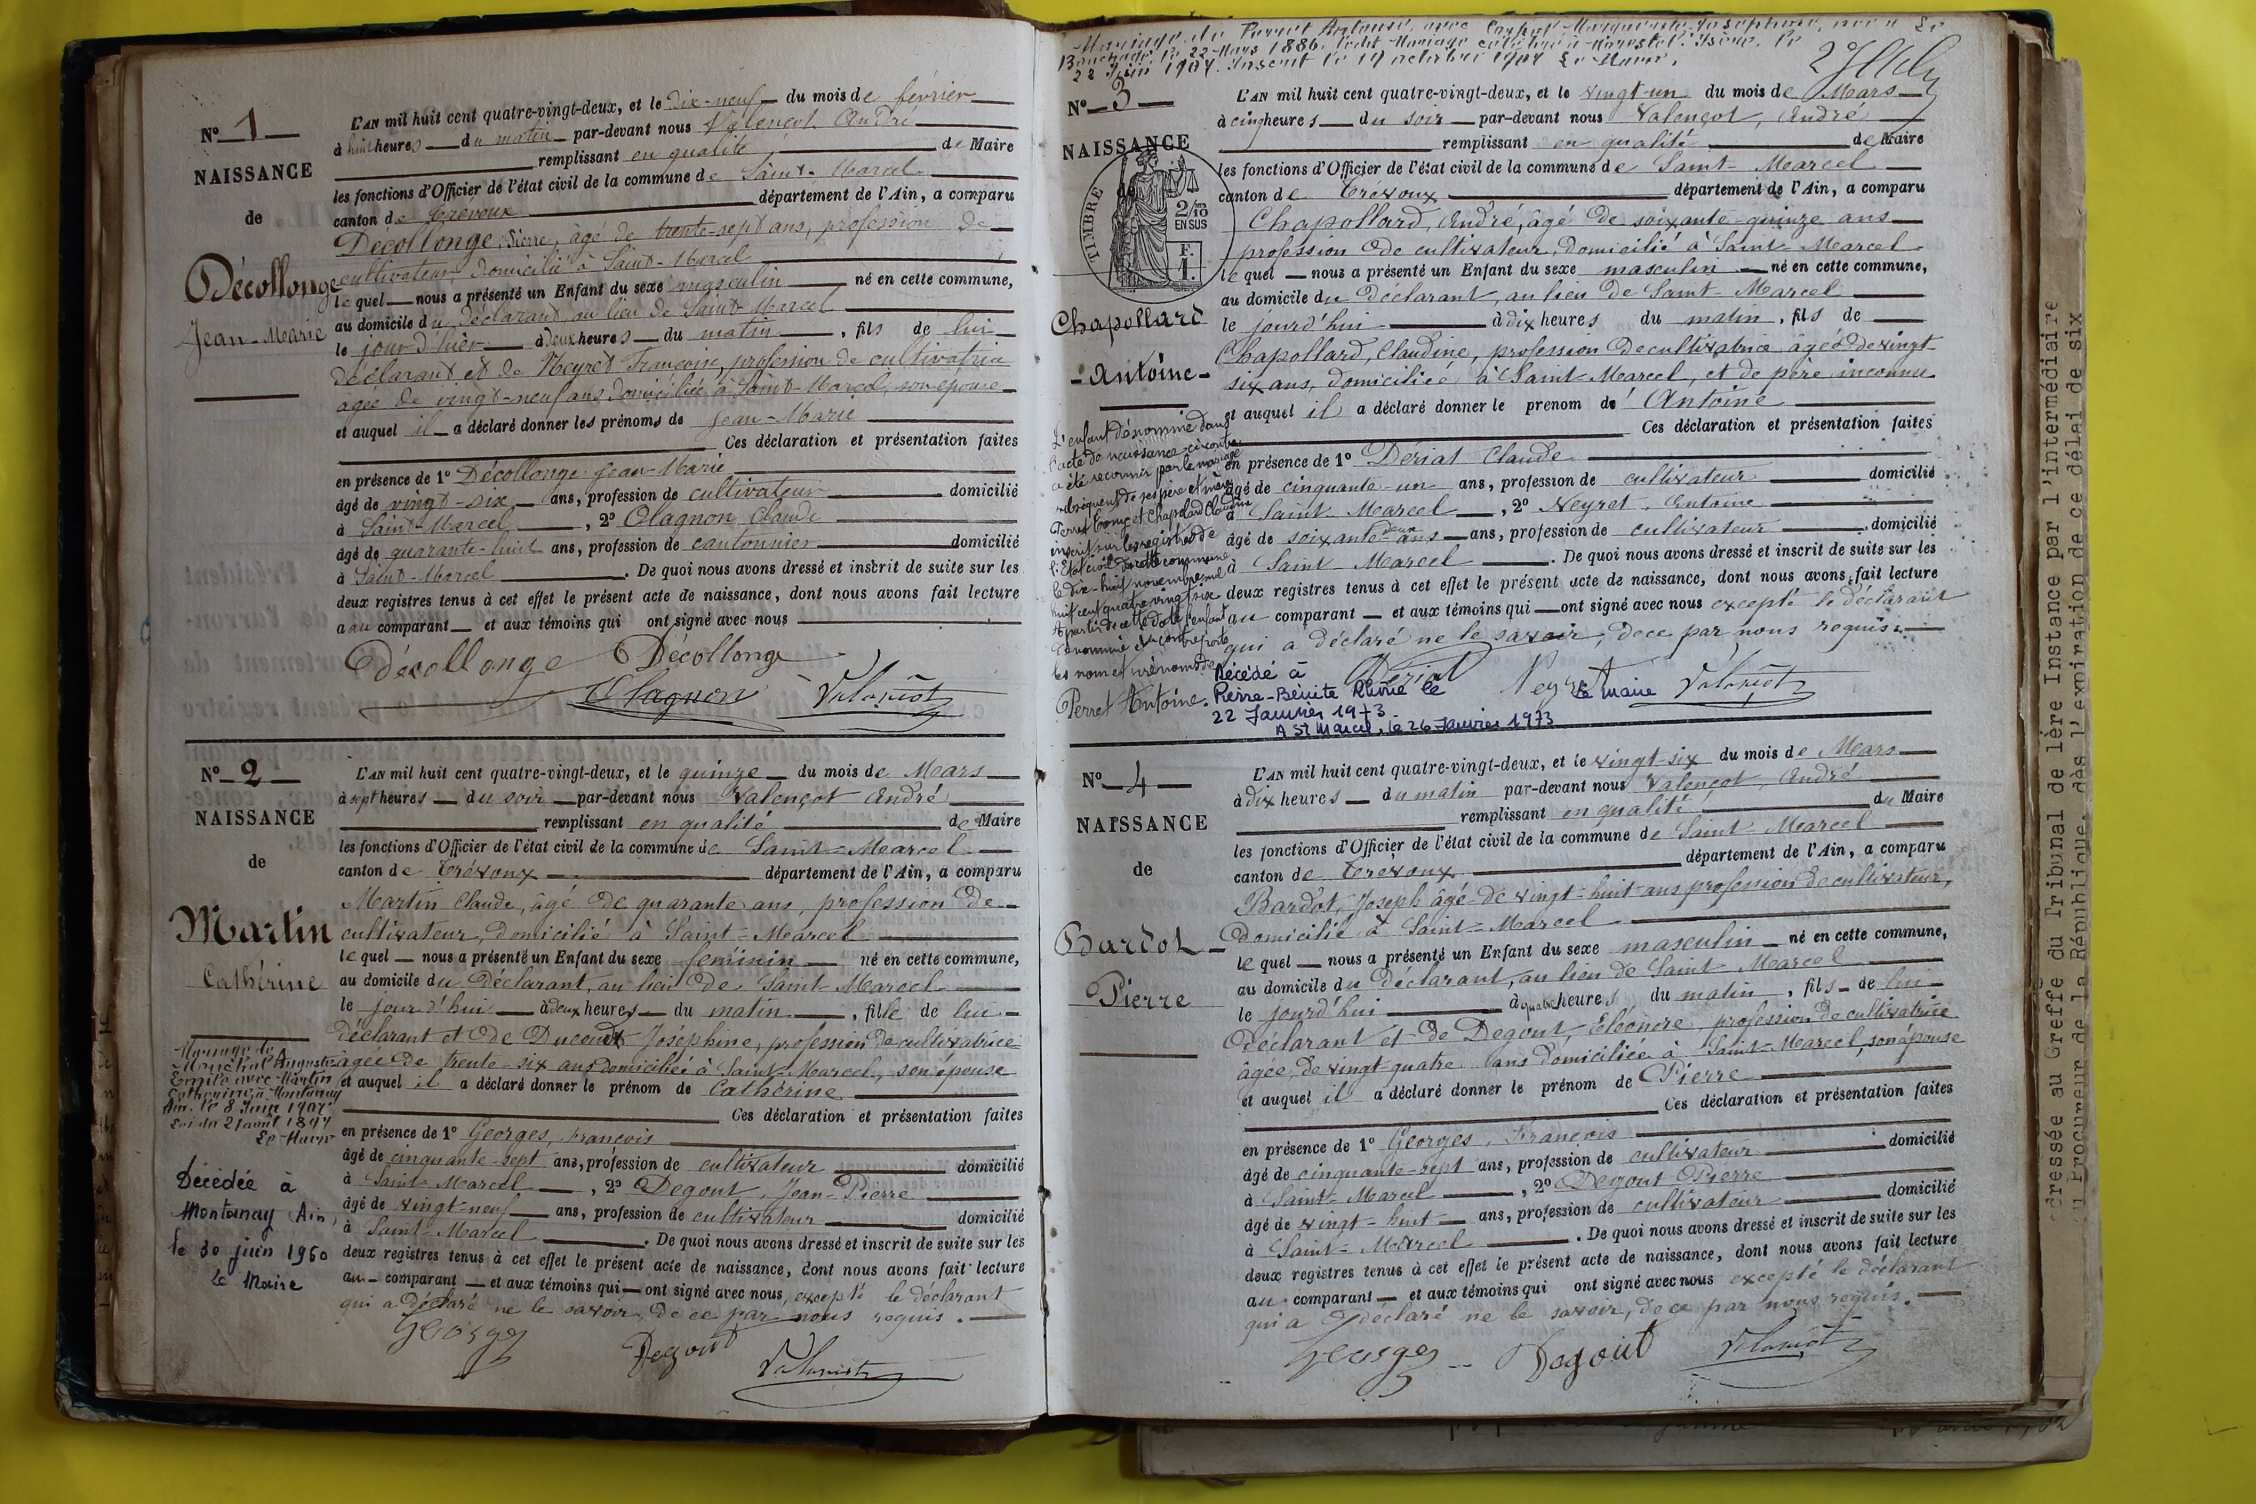 N° 1
NAISSANCE
de
Décollonge
Jean-Marie
L'AN mil huit cent quatre-vingt-deux, et le dix-neuf du mois de février
à huit heures du matin par-devant nous Valençot André
remplissant en qualité de Maire
les fonctions d'Officier de l'état civil de la commune de Saint-Marcel
canton de Trévoux département de l'Ain, a comparu
Décollonge, Pierre, âgé de trente-sept ans, profession de
cultivateur, domicilié à Saint-Marcel
le quel nous a présenté un Enfant du sexe masculin né en cette commune,
au domicile du déclarant, au lieu de Saint-Marcel
le jour d'hier à deux heures du matin, fils de lui
déclarant et de Neyret Françoise, profession de cultivatrice
âgée de vingt-neuf ans domiciliée à Saint-Marcel, son épouse
et auquel il a déclaré donner les prénoms de Jean-Marie
Ces déclaration et présentation faites
en présence de 1° Décollonge Jean-Marie
âgé de vingt-six ans, profession de cultivateur domicilié
à Saint-Marcel, 2° Olagnon Claude
âgé de quarante-huit ans, profession de cantonnier domicilié
à Saint-Marcel. De quoi nous avons dressé et inscrit de suite sur les
deux registres tenus à cet effet le présent acte de naissance, dont nous avons fait lecture
au comparant et aux témoins qui ont signé avec nous
Décollonge Décollonge
Olagnon Valençot
N° 2
NAISSANCE
de
Martin
Cathérine
L'AN mil huit cent quatre-vingt-deux, et le quinze du mois de Mars
à sept heures du soir par-devant nous Valençot André
remplissant en qualité de Maire
les fonctions d'Officier de l'état civil de la commune de Saint-Marcel
canton de Trévoux département de l'Ain, a comparu
Martin Claude, âgé de quarante ans, profession de
cultivateur, domicilié à Saint-Marcel
le quel nous a présenté un Enfant du sexe féminin né en cette commune,
au domicile du déclarant, au lieu de Saint-Marcel
le jour d'hui à deux heures du matin, fille de lui
déclarant et de Joséphine, profession de cultivatrice
âgée de trente-six ans domiciliée à Saint-Marcel, son épouse
et auquel il a déclaré donner le prénom de Cathérine
Ces déclaration et présentation faites
en présence de 1° Georges, François
âgé de cinquante-sept ans, profession de cultivateur domicilié
à Saint-Marcel, 2° Degout, Jean-Pierre
âgé de vingt-neuf ans, profession de cultivateur domicilié
à Saint-Marcel. De quoi nous avons dressé et inscrit de suite sur les
deux registres tenus à cet effet le présent acte de naissance, dont nous avons fait lecture
au comparant et aux témoins qui ont signé avec nous, excepté le déclarant
qui a déclaré ne le savoir, de ce par nous requis.
Georges Degout Valençot
Mariage de
Auguste
Emile avec Martin
Catherine à Montanay
Ain. le 8 Juin 1907
Loi du 21 août 1897
Le Maire
Décédée à
Montanay Ain,
le 30 juin 1960
Le Maire
Mariage de Perret Antoine, avec Marguerite Joséphine, née à
le 22 Mars 1886. ledit Mariage célébré à Isère, le
22 Juin 1907. Inscrit le 19 octobre 1907 Le Maire.
N° 3
NAISSANCE
de
TIMBRE
2/10
EN SUS
F.
1.
Chapollard
Antoine
L'AN mil huit cent quatre-vingt-deux, et le vingt-un du mois de Mars
à cinq heures du soir par-devant nous Valençot, André
remplissant en qualité de Maire
les fonctions d'Officier de l'état civil de la commune de Saint-Marcel
canton de Trévoux département de l'Ain, a comparu
Chapollard, André, âgé de soixante-quinze ans
profession de cultivateur, domicilié à Saint-Marcel
le quel nous a présenté un Enfant du sexe masculin né en cette commune,
au domicile du déclarant, au lieu de Saint-Marcel
le jourd'hui à dix heures du matin, fils de
Chapollard, Claudine, profession de cultivatrice âgée de vingt
six ans, domiciliée à Saint-Marcel, et de père inconnu
et auquel il a déclaré donner le prenom de Antoine
Ces déclaration et présentation faites
en présence de 1° Dériat Claude
âgé de cinquante-un ans, profession de cultivateur domicilié
à Saint-Marcel, 2° Neyret Antoine
âgé de soixante deux ans ans, profession de cultivateur domicilié
à Saint-Marcel. De quoi nous avons dressé et inscrit de suite sur les
deux registres tenus à cet effet le présent acte de naissance, dont nous avons fait lecture
au comparant et aux témoins qui ont signé avec nous excepté le déclarant
qui a déclaré ne le savoir, de ce par nous requis.
Dériat Neyret Le Maire Valençot
L'enfant dénommé dans
l'acte de naissance ci-contre
a été reconnu par le mariage
subséquent de ses père et mère
Perret et Chapolard Claudine
inscrit sur les registres de
l'Etat civil de cette commune
le dix-huit novembre mil
huit cent quatre vingt six
A partir de cette date l'enfant
dénommé ci-contre porte
les nom et prénoms de
Perret Antoine.
Décédé à
Pierre-Bénite Rhône le
22 Janvier 1973
A St Marcel, le 26 Janvier 1973
N° 4
NAISSANCE
de
Bardot
Pierre
L'AN mil huit cent quatre-vingt-deux, et le vingt-six du mois de Mars
à dix heures du matin par-devant nous Valençot, André
remplissant en qualité du Maire
les fonctions d'Officier de l'état civil de la commune de Saint-Marcel
canton de Trévoux département de l'Ain, a comparu
Bardot, Joseph âgé de vingt-huit ans profession de cultivateur,
domicilié à Saint-Marcel
le quel nous a présenté un Enfant du sexe masculin né en cette commune,
au domicile du déclarant, au lieu de Saint-Marcel
le jourd'hui à quatre heures du matin, fils de lui
déclarant et de Degout, Eléonore, profession de cultivatrice
âgée de vingt-quatre ans domiciliée à Saint-Marcel, son épouse
et auquel il a déclaré donner le prénom de Pierre
Ces déclaration et présentation faites
en présence de 1° Georges, François
âgé de cinquante-sept ans, profession de cultivateur domicilié
à Saint-Marcel, 2° Degout Pierre
âgé de vingt-huit ans, profession de cultivateur domicilié
à Saint-Marcel. De quoi nous avons dressé et inscrit de suite sur les
deux registres tenus à cet effet le présent acte de naissance, dont nous avons fait lecture
au comparant et aux témoins qui ont signé avec nous excepté le déclarant
qui a déclaré ne le savoir, de ce par nous requis.
Georges Degout Valençot
dressée au Greffe du Tribunal de 1ère Instance par l'intermédiaire
du Procureur de la République, dès l'expiration de ce délai de six